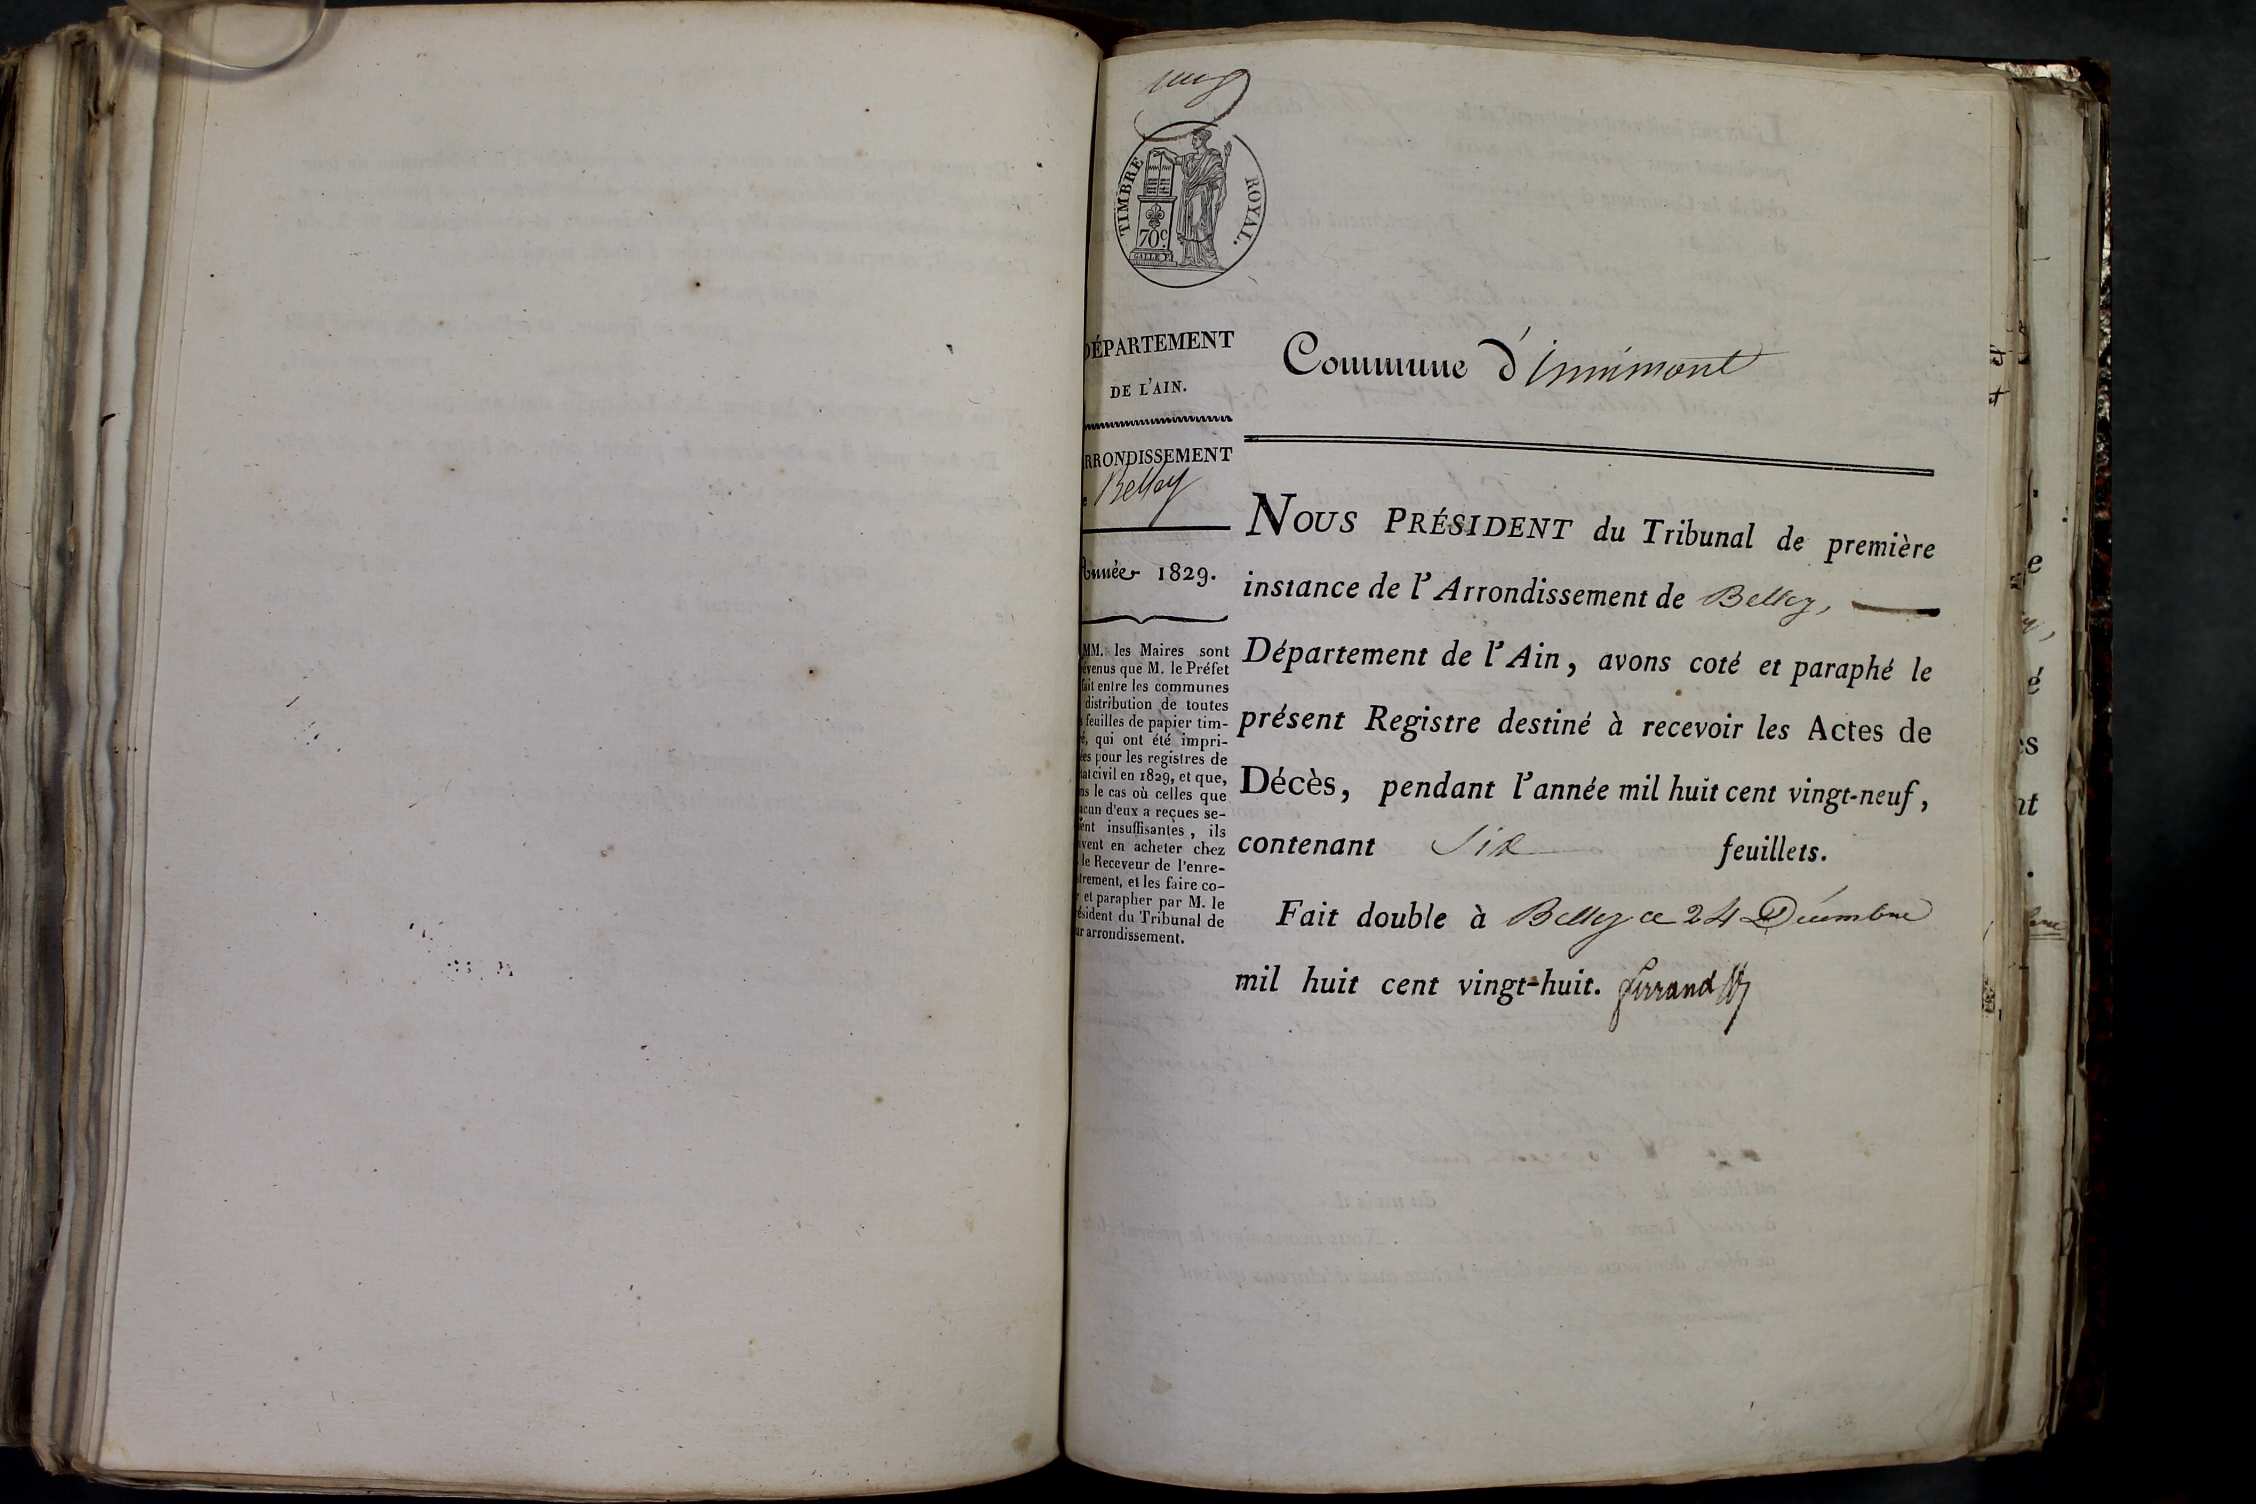 TIMBRE ROYAL.
70c.
DÉPARTEMENT
DE L'AIN.
ARRONDISSEMENT
Belley
Année 1829.
MM. les Maires sont
évenus que M. le Préfet
fait entre les communes
distribution de toutes
s feuilles de papier tim-
é, qui ont été impri-
ées pour les registres de
tat civil en 1829, et que,
ns le cas où celles que
acun d'eux a reçues se-
ient insuffisantes, ils
ivent en acheter chez
le Receveur de l'enre-
trement, et les faire co-
r et parapher par M. le
ésident du Tribunal de
ur arrondissement.
Commune d'innimont
NOUS PRÉSIDENT du Tribunal de première
instance de l'Arrondissement de Belley,
Département de l'Ain, avons coté et paraphé le
présent Registre destiné à recevoir les Actes de
Décès, pendant l'année mil huit cent vingt-neuf,
contenant Six feuillets.
Fait double à Belley ce 24 Décembre
mil huit cent vingt-huit. ferrand